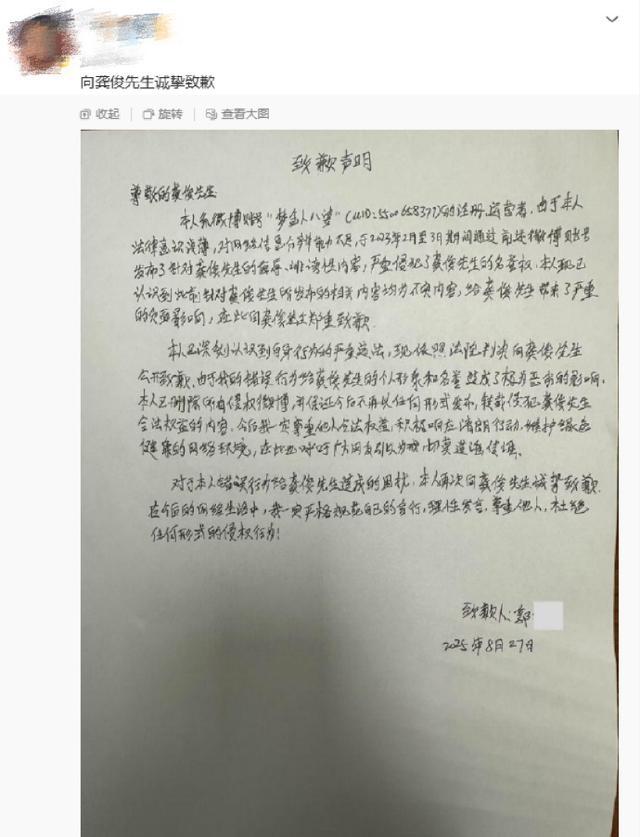 向龚俊先生诚挚致歉
收起 旋转 查看大图
致歉声明
尊敬的龚俊先生
本人系微博账号"梦孟人八婆"(UID:5500658377)的注册、运营者,由于本人
法律意识浅薄,对网络信息分辨能力不足,于2023年2月至3月期间通过前述微博账号
发布了针对龚俊先生的侮辱、诽谤性内容,严重侵犯了龚俊先生的名誉权。本人现已
认识到此前针对龚俊先生所发布的相关内容均为不实内容,给龚俊先生带来了严重
的负面影响,在此向龚俊先生郑重致歉。
本人已深刻认识到自身行为的严重违法,现依照法院判决向龚俊先生
公开致歉,由于我的错误行为给龚俊先生的个人形象和名誉造成了极为恶劣的影响,
本人已删除所有侵权微博,并保证今后不再以任何形式发布、转载侵犯龚俊先生
合法权益的内容。今后我一定尊重他人合法权益,积极响应清朗行动,维护绿色
健康的网络环境,在此也呼吁广大网友引以为戒,切莫造谣传谣。
对于本人错误行为给龚俊先生造成的困扰,本人再次向龚俊先生诚挚致歉。
在今后的网络生活中,我一定严格规范自己的言行,理性发言,尊重他人,杜绝
任何形式的侵权行为!
致歉人:郭
2025年8月27日